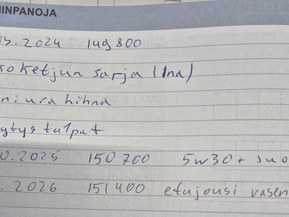 IINPANOJA
03.2024 149 800
roketjun sarja (Ina)
niura hihna
ytys tulpat
0.2025 150 700 5w30 + suo
. 2026 151 400 etujousi vasen